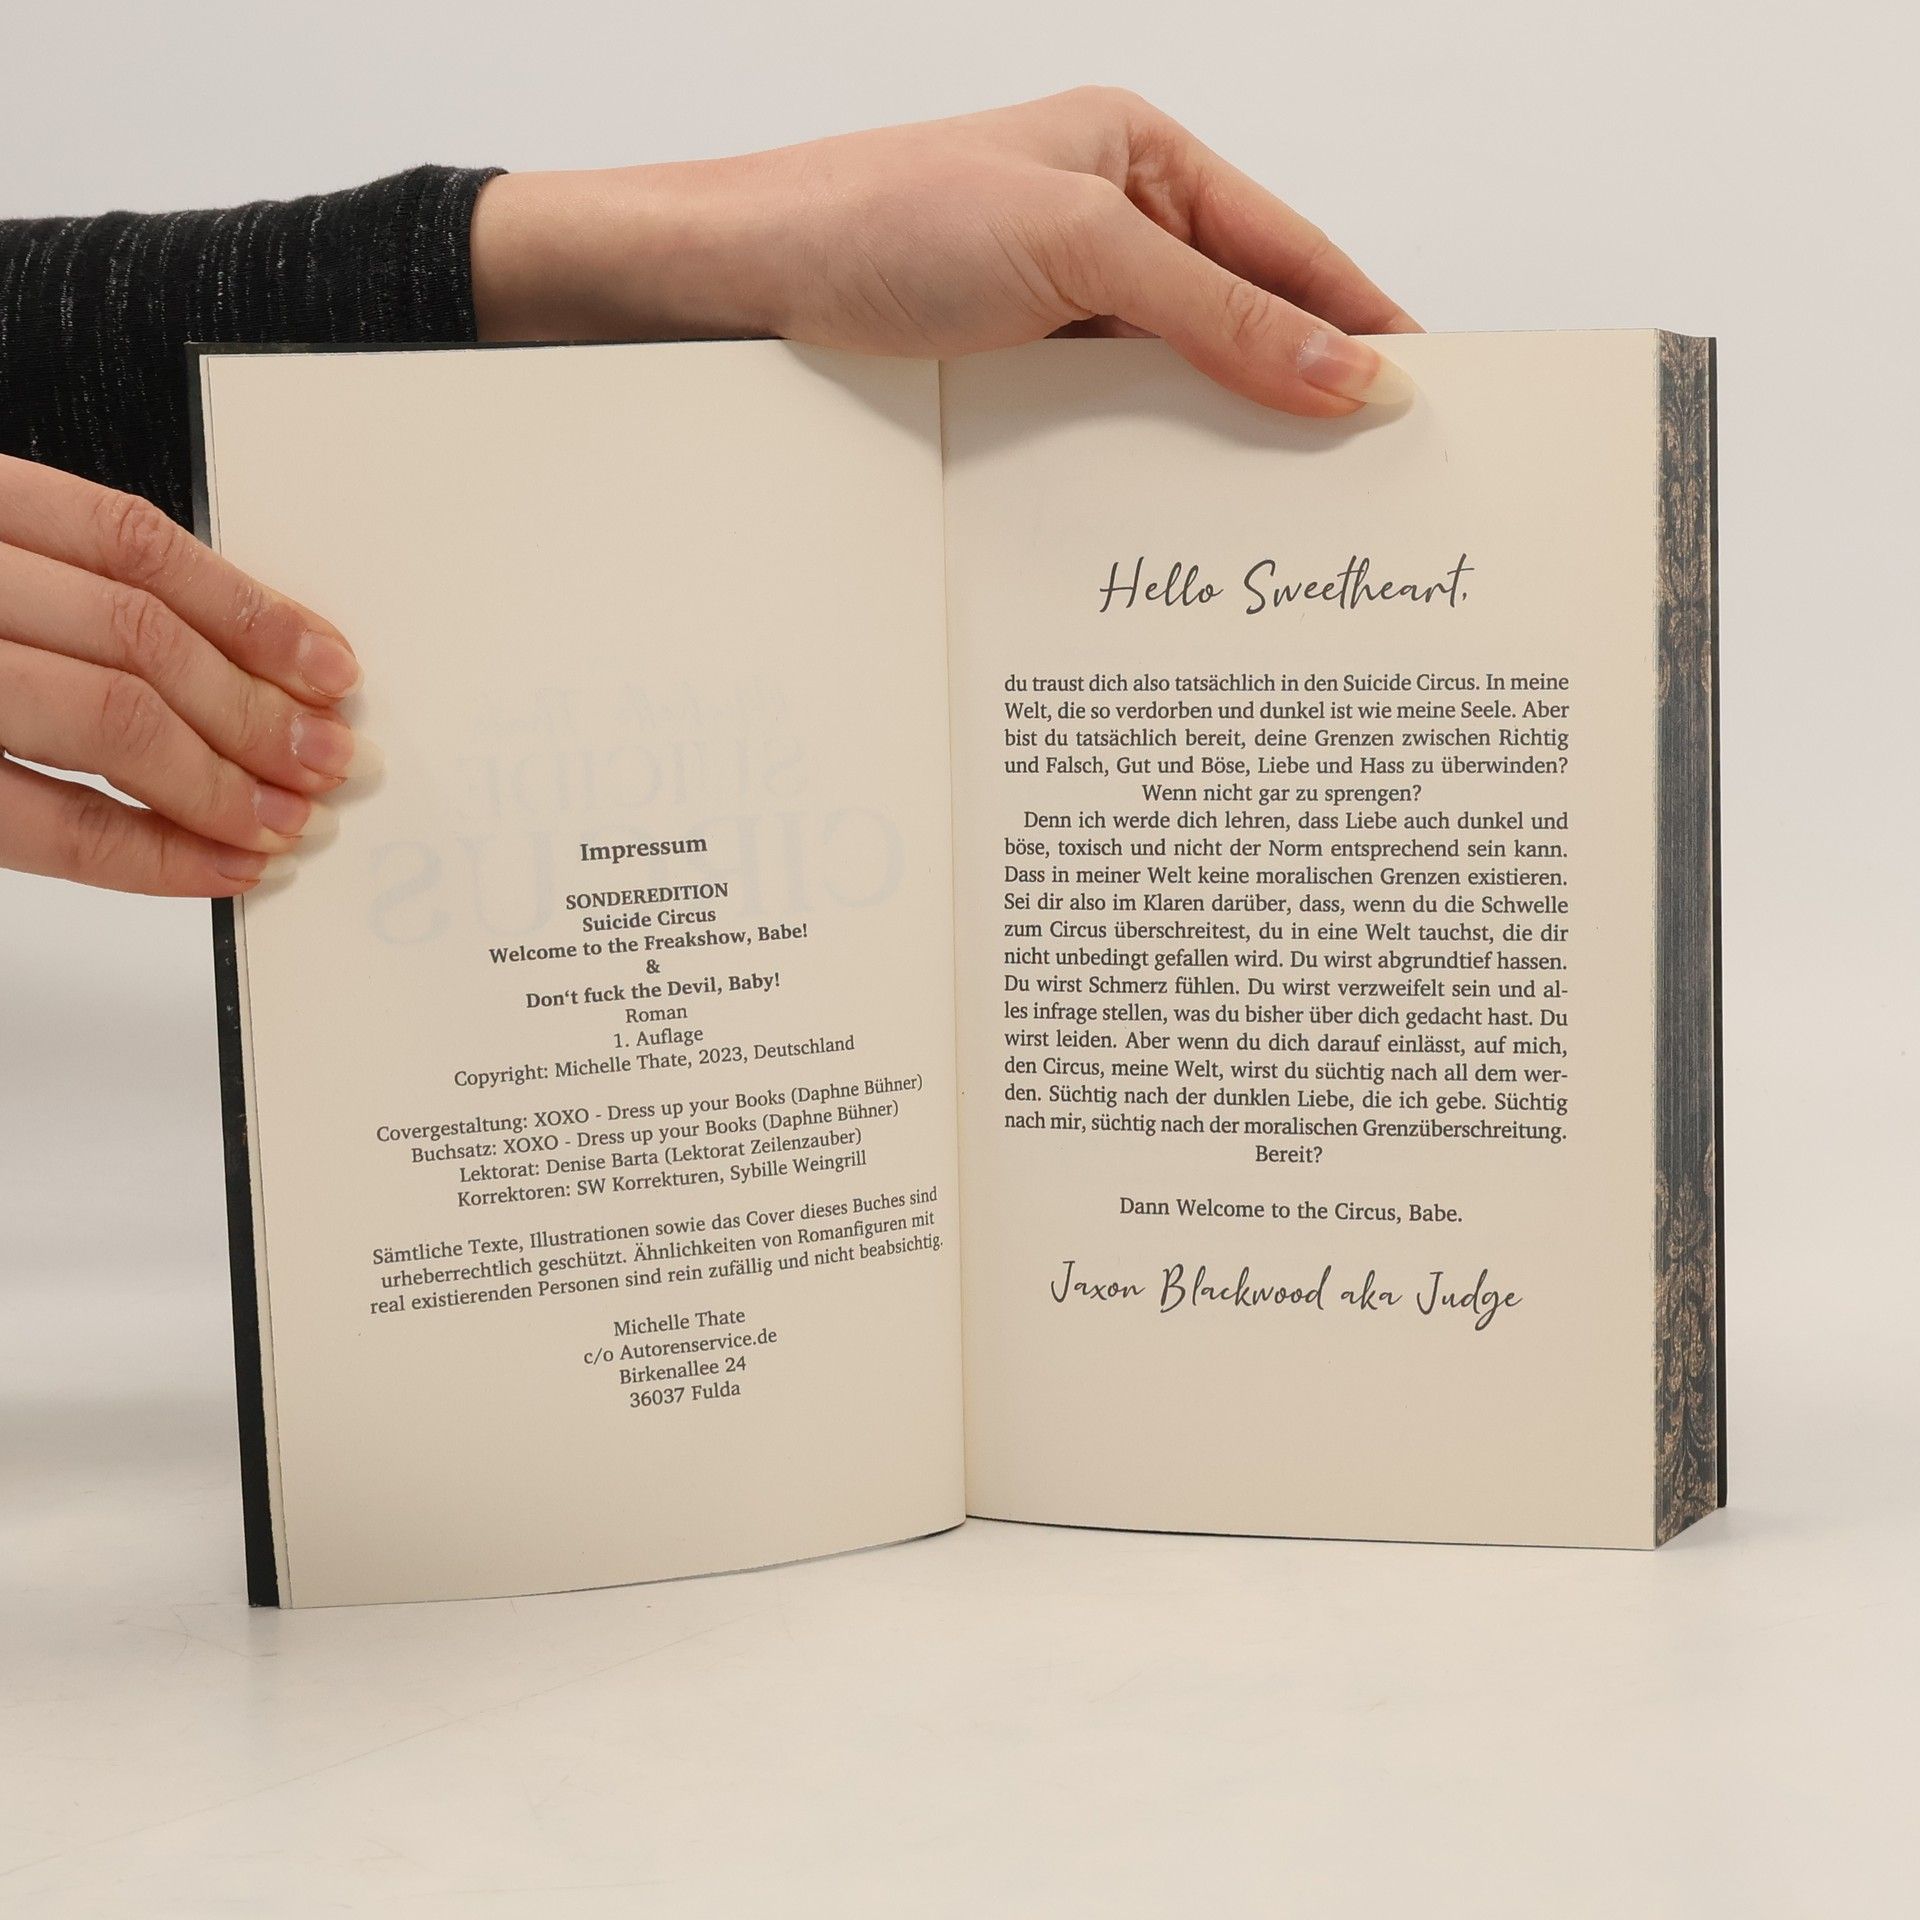 Impressum
SONDEREDITION
Suicide Circus
Welcome to the Freakshow, Babe!
&
Don‘t fuck the Devil, Baby!
Roman
1. Auflage
Copyright: Michelle Thate, 2023, Deutschland
Covergestaltung: XOXO - Dress up your Books (Daphne Bühner)
Buchsatz: XOXO - Dress up your Books (Daphne Bühner)
Lektorat: Denise Barta (Lektorat Zeilenzauber)
Korrektoren: SW Korrekturen, Sybille Weingrill
Sämtliche Texte, Illustrationen sowie das Cover dieses Buches sind
urheberrechtlich geschützt. Ähnlichkeiten von Romanfiguren mit
real existierenden Personen sind rein zufällig und nicht beabsichtig.
Michelle Thate
c/o Autorenservice.de
Birkenallee 24
36037 Fulda
Hello Sweetheart,
du traust dich also tatsächlich in den Suicide Circus. In meine
Welt, die so verdorben und dunkel ist wie meine Seele. Aber
bist du tatsächlich bereit, deine Grenzen zwischen Richtig
und Falsch, Gut und Böse, Liebe und Hass zu überwinden?
Wenn nicht gar zu sprengen?
Denn ich werde dich lehren, dass Liebe auch dunkel und
böse, toxisch und nicht der Norm entsprechend sein kann.
Dass in meiner Welt keine moralischen Grenzen existieren.
Sei dir also im Klaren darüber, dass, wenn du die Schwelle
zum Circus überschreitest, du in eine Welt tauchst, die dir
nicht unbedingt gefallen wird. Du wirst abgrundtief hassen.
Du wirst Schmerz fühlen. Du wirst verzweifelt sein und al-
les infrage stellen, was du bisher über dich gedacht hast. Du
wirst leiden. Aber wenn du dich darauf einlässt, auf mich,
den Circus, meine Welt, wirst du süchtig nach all dem wer-
den. Süchtig nach der dunklen Liebe, die ich gebe. Süchtig
nach mir, süchtig nach der moralischen Grenzüberschreitung.
Bereit?
Dann Welcome to the Circus, Babe.
Jaxon Blackwood aka Judge